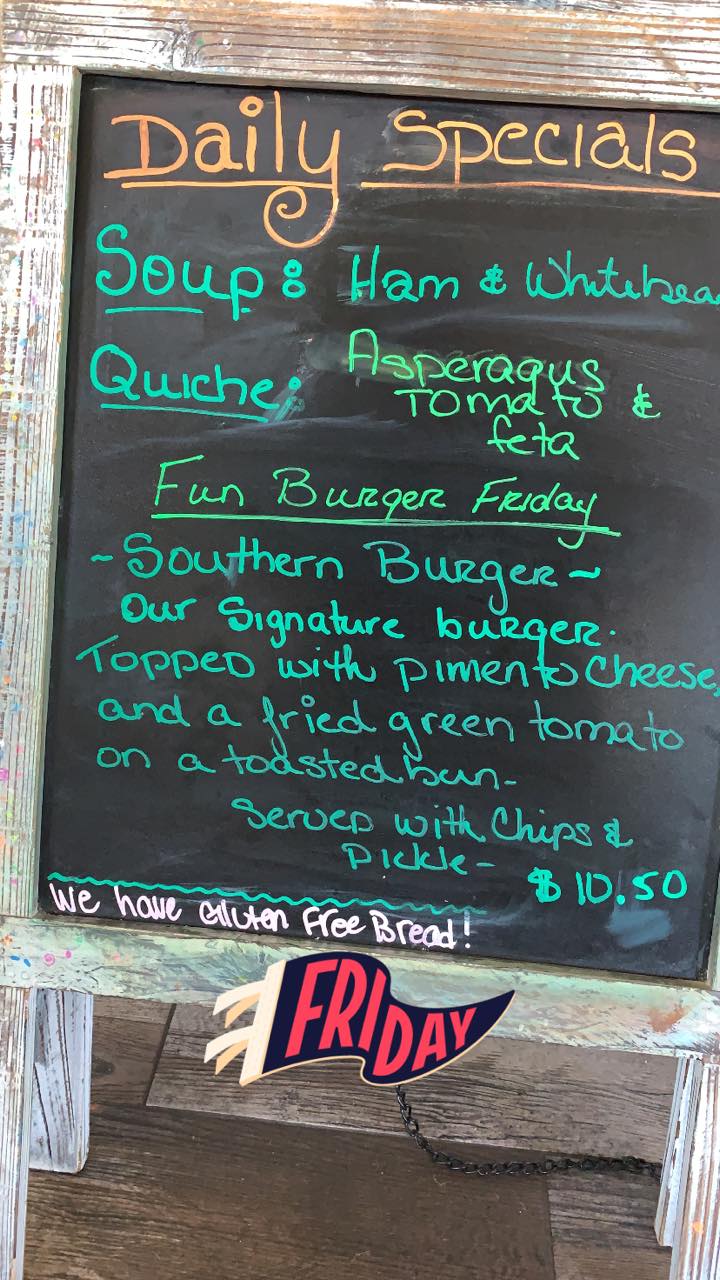 Daily Specials
Soup: Ham & Whitebea
Quiche: Asparagus
Tomato &
feta
Fun Burger Friday
~Southern Burger~
Our Signature burger.
Topped with pimento cheese,
and a fried green tomato
on a toasted bun-
Served with Chips &
Pickle- $10.50
We have Gluten Free Bread!
FRIDAY